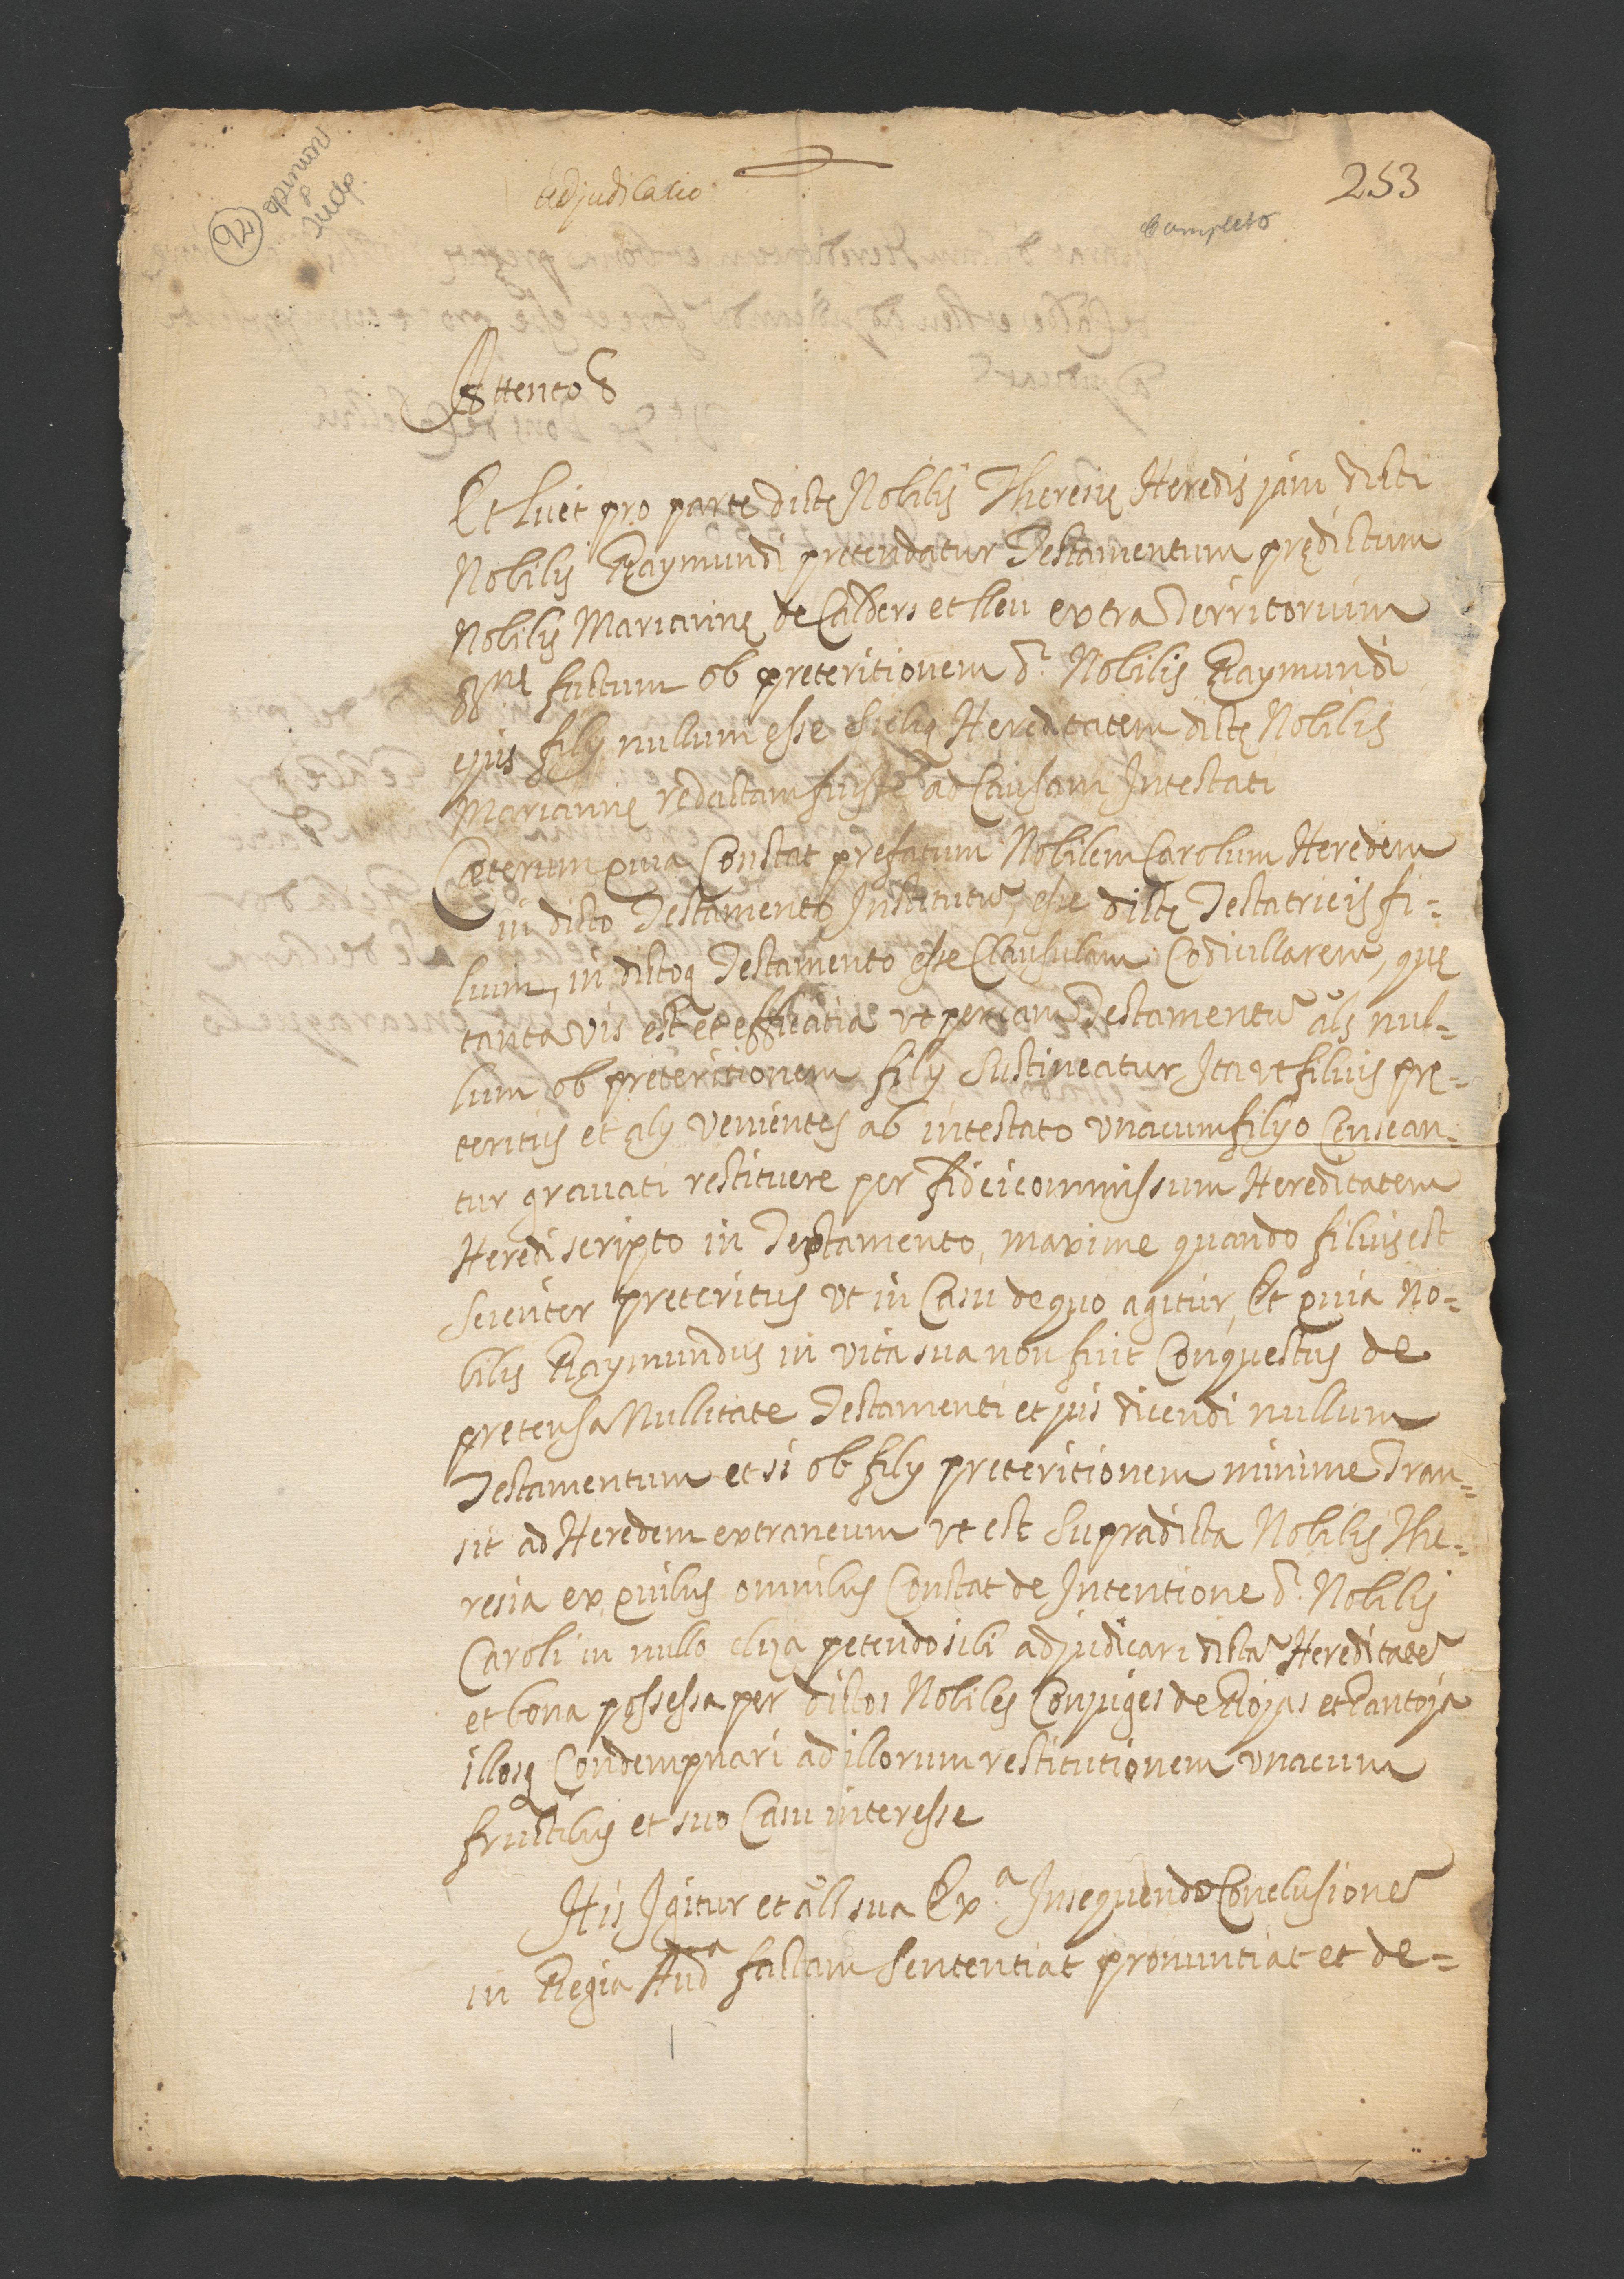 adjudicatio
253
Completo
92
Attento &
Et licet pro parte dictę Nobilis Theresię Heredis jam dicti
Nobilis Raymundi pretendatur Testamentum prędictum
Nobilis Mariannę de Calders et lleu extra Territorium
factum ob preteritionem d. Nobilis Raymundi
ejus filij nullum esse sicq Hereditatem dictę Nobilis
Mariannę redactam fuisse ad Causam Intestati
Cæterum quia Constat prefatum Nobilem Carolum Heredem
in dicto Testamento Institutū, esse dictę Testatricis fi=
lium, in dictoq Testamento esse Clausulam Codicillarem, quę
tanta vis est et efficatia vt per eam Testamentū als nul=
lum ob preteritionem filij Sustineatur Ita vt filius prę=
teritus et alij venientes ab intestato vnacum filijo Censean=
tur grauati restituere per fideicommissum Hereditatem
Heredi scripto in Testamento, maxime quando filius est
Scienter preteritus vt in Casu de quo agitur, Et quia No=
bilis Raymundus in vita sua non fuit Conquestus de
pretensa Nullitate Testamenti et jus dicendi nullum
Testamentum et si ob filij preteritionem minime Tran=
sit ad Heredem extraneum vt est Supradicta Nobilis The=
resia ex quibus omnibus Constat de Intentione d. Nobilis
Caroli in nullo elisa petendo sibi adjudicari dictā Hereditatē
et bona possessa per dictos Nobiles Conjuges de Rojas et Pantoja
illosq Condempnari ad illorum restitutionem vnacum
fructibus et suo Casu interesse
His Igitur et all sua Ex.ª Insequendo Conclusionē
in Regia Aud.ª factam Sententiat pronuntiat et de=